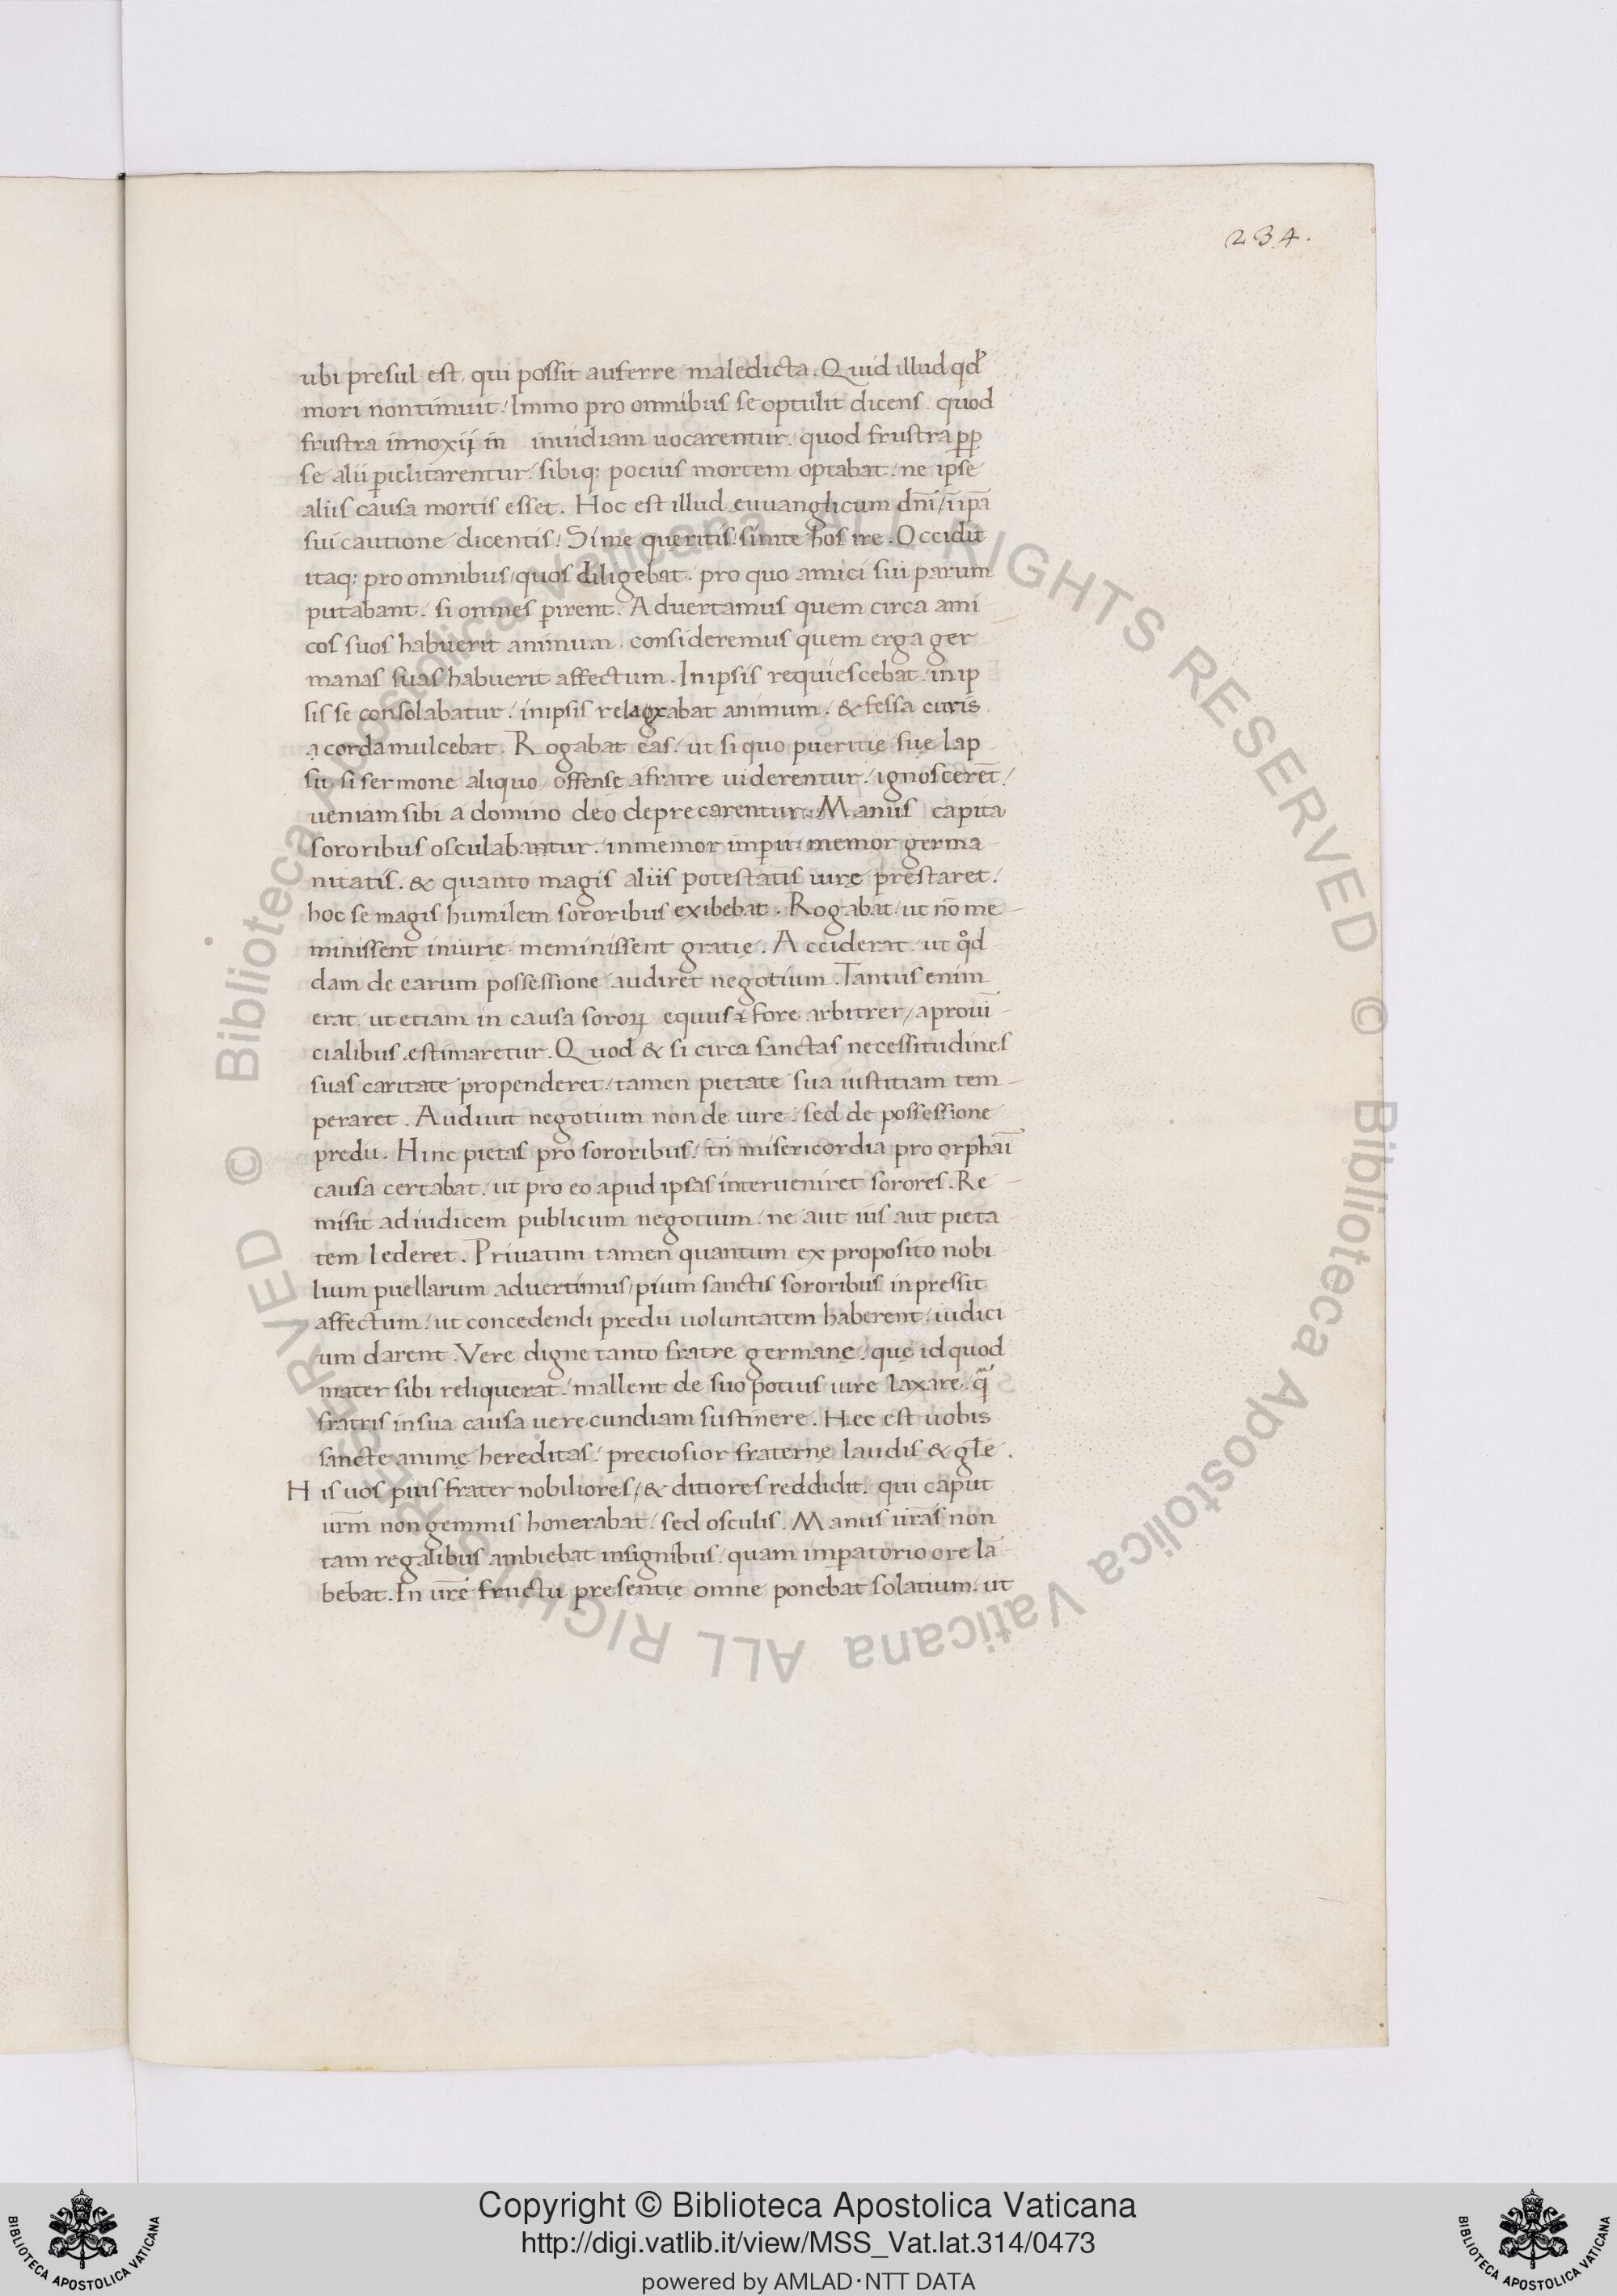 234.
ubi presul est, qui possit auferre maledicta. Quid illud qđ
mori non timuit. Immo pro omnibus se optulit dicens. quod
frustra innoxij in inuidiam uocarentur. quod frustra ꝓp
se alii ꝑiclitarentur. sibiq; pocius mortem optabat. ne ipse
aliis causa mortis esset. Hoc est illud euuanglicum dn̄i / ī ipā
sui cautione dicentis! Si me queritis! sinite hos ire. Occidit
itaq; pro omnibus / quos diligebat. pro quo amici sui parum
putabant. si omnes ꝑirent. Aduertamus quem circa ami
cos suos habuerit animum. consideremus quem erga ger
manas suas habuerit affectum. In ipsis requiescebat. in ip
sis se consolabatur. in ipsis relaxabat animum. & fessa curis
a corda mulcebat. Rogabat eas. ut si quo pueritię suę lap
su, si sermone aliquo offensę a fratre uiderentur. ignoscerēt /
ueniam sibi a domino deo deprecarentur. Manus capita
sororibus osculabantur. inmemor imꝑii. memor germa
nitatis. & quanto magis aliis potestatis iurę prestaret.
hoc se magis humilem sororibus exibebat. Rogabat. ut nō me
minissent iniurię. meminissent gratię. Acciderat. ut qͦd
dam de earum possessione audiret negotium. Tantus enim
erat. ut etiam in causa soroꝝ equus fore arbitrer / a prouī
cialibus estimaretur. Quod & si circa sanctas necessitudines
suas caritate propenderet. tamen pietate sua iustitiam tem
peraret. Audiuit negotium non de iure. sed de possessione
predii. Hinc pietas pro sororibus. īn misericordia pro orphāi
causa certabat. ut pro eo apud ipsas interueniret sorores. Re
misit ad iudicem publicum negotium. ne aut ius aut pieta
tem lederet. Priuatim tamen quantum ex proposito nobi
lium puellarum aduertimus / pium sanctis sororibus inpressit
affectum. ut concedendi predii uoluntatem haberent. iudici
um darent. Vere digne tanto fratre germanę. quę id quod
mater sibi reliquerat. mallent de suo potius iure laxare. q̄
fratris in sua causa uerecundiam sustinere. Hec est uobis
sancte animę hereditas. preciosior fraternę laudis & głe.
His uos pius frater nobiliores / & ditiores reddidit. qui caput
ur̄m non gemmis honerabat. sed osculis. Manus ur̄as non
tam regalibus ambiebat insignibus. quam imꝑatorio ore la
bebat. In ur̄e fructu presentię omne ponebat solatium. ut
© Biblioteca Apostolica Vaticana ALL RIGHTS RESERVED © Biblioteca Apostolica Vaticana ALL RIGHTS RESERVED
BIBLIOTECA APOSTOLICA VATICANA
Copyright © Biblioteca Apostolica Vaticana
http://digi.vatlib.it/view/MSS_Vat.lat.314/0473
powered by AMLAD·NTT DATA
BIBLIOTECA APOSTOLICA VATICANA